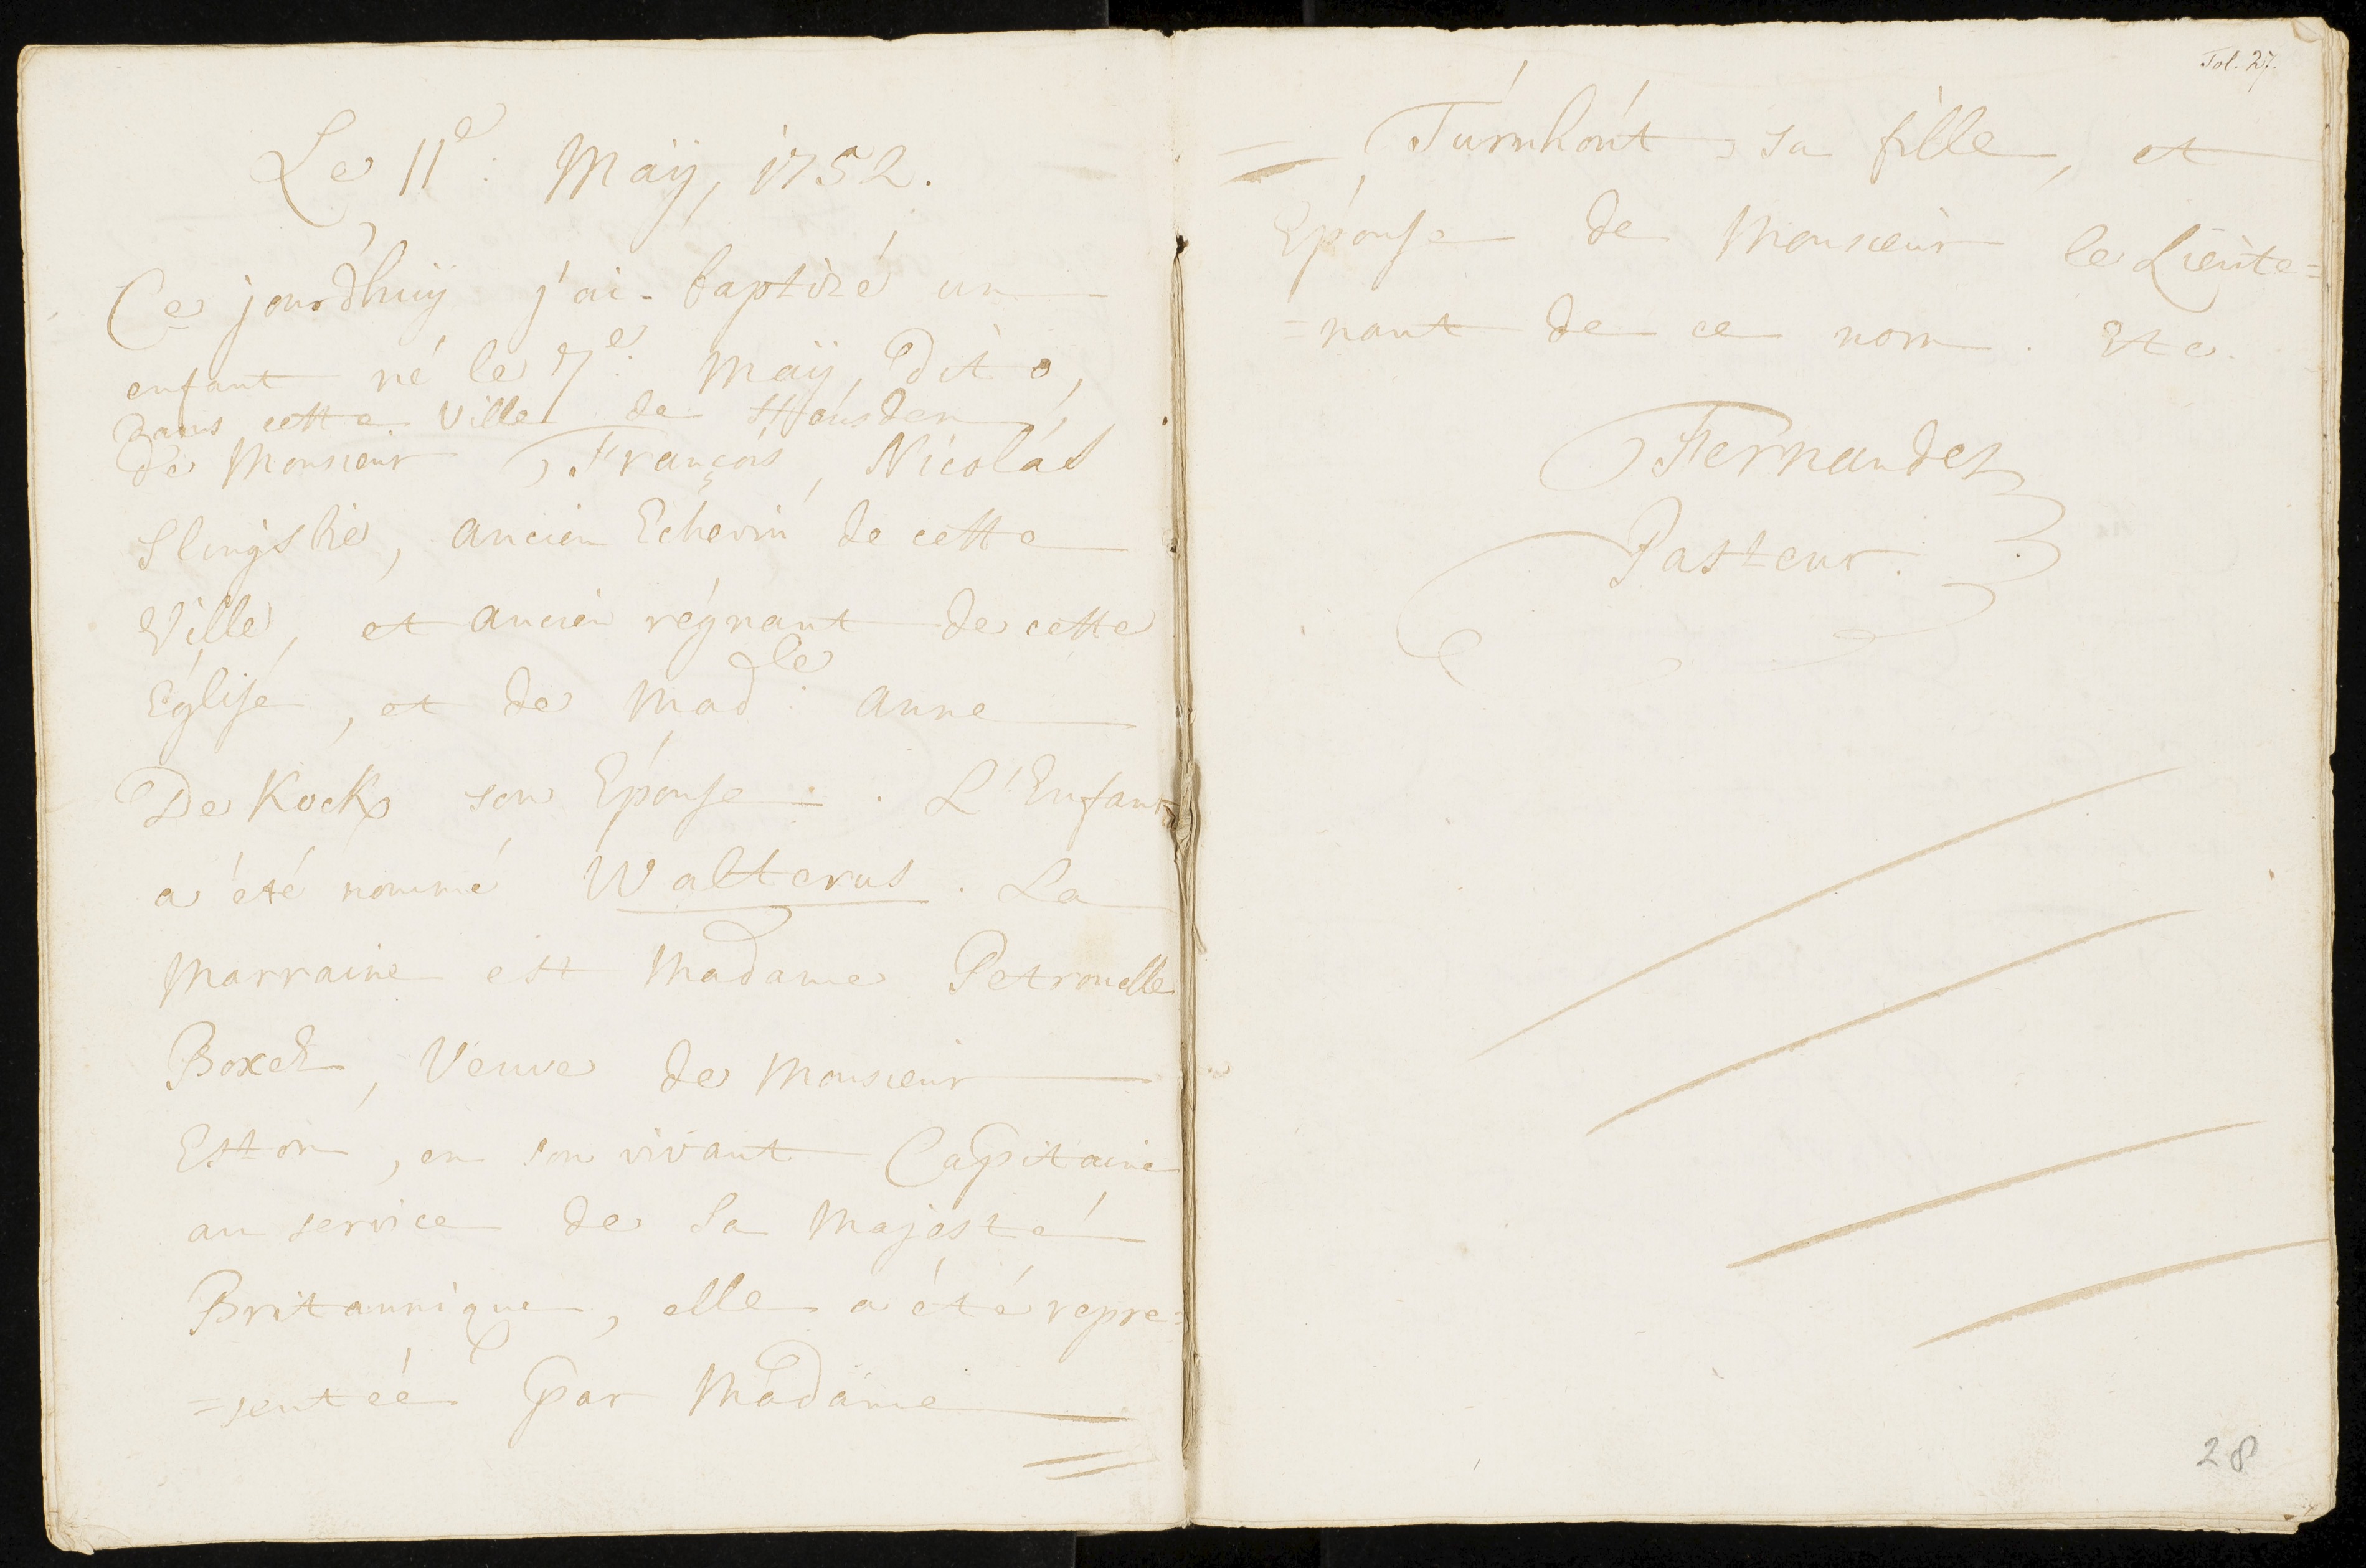 Le 11e: Maÿ, 1752.
Ce jourdhuÿ j'ai baptizé un
enfant né le 7e: Maÿ, Dito,
Dans cette Ville de Heusden,
De Monsieur François, Nicolas
Slingsbie, ancien Echevin de cette
Ville, et ancien régnant de cette
Église, et de Madle: Anne
De Kock, son Epouse. L'Enfant
a été nommé Walterus. La
Marraine est Madame Petronelle
Boxel, Veuve de Monsieur
Eston, en son vivant Capitaine
au service de Sa Majesté
Britannique, elle a été repre=
=sentéé par Madame
Fol. 27.
= Turnhout, sa fille, et
Epouse de Monsieur le Lieute=
=nant de ce nom. Etc.
Fernandes
Pasteur.
28